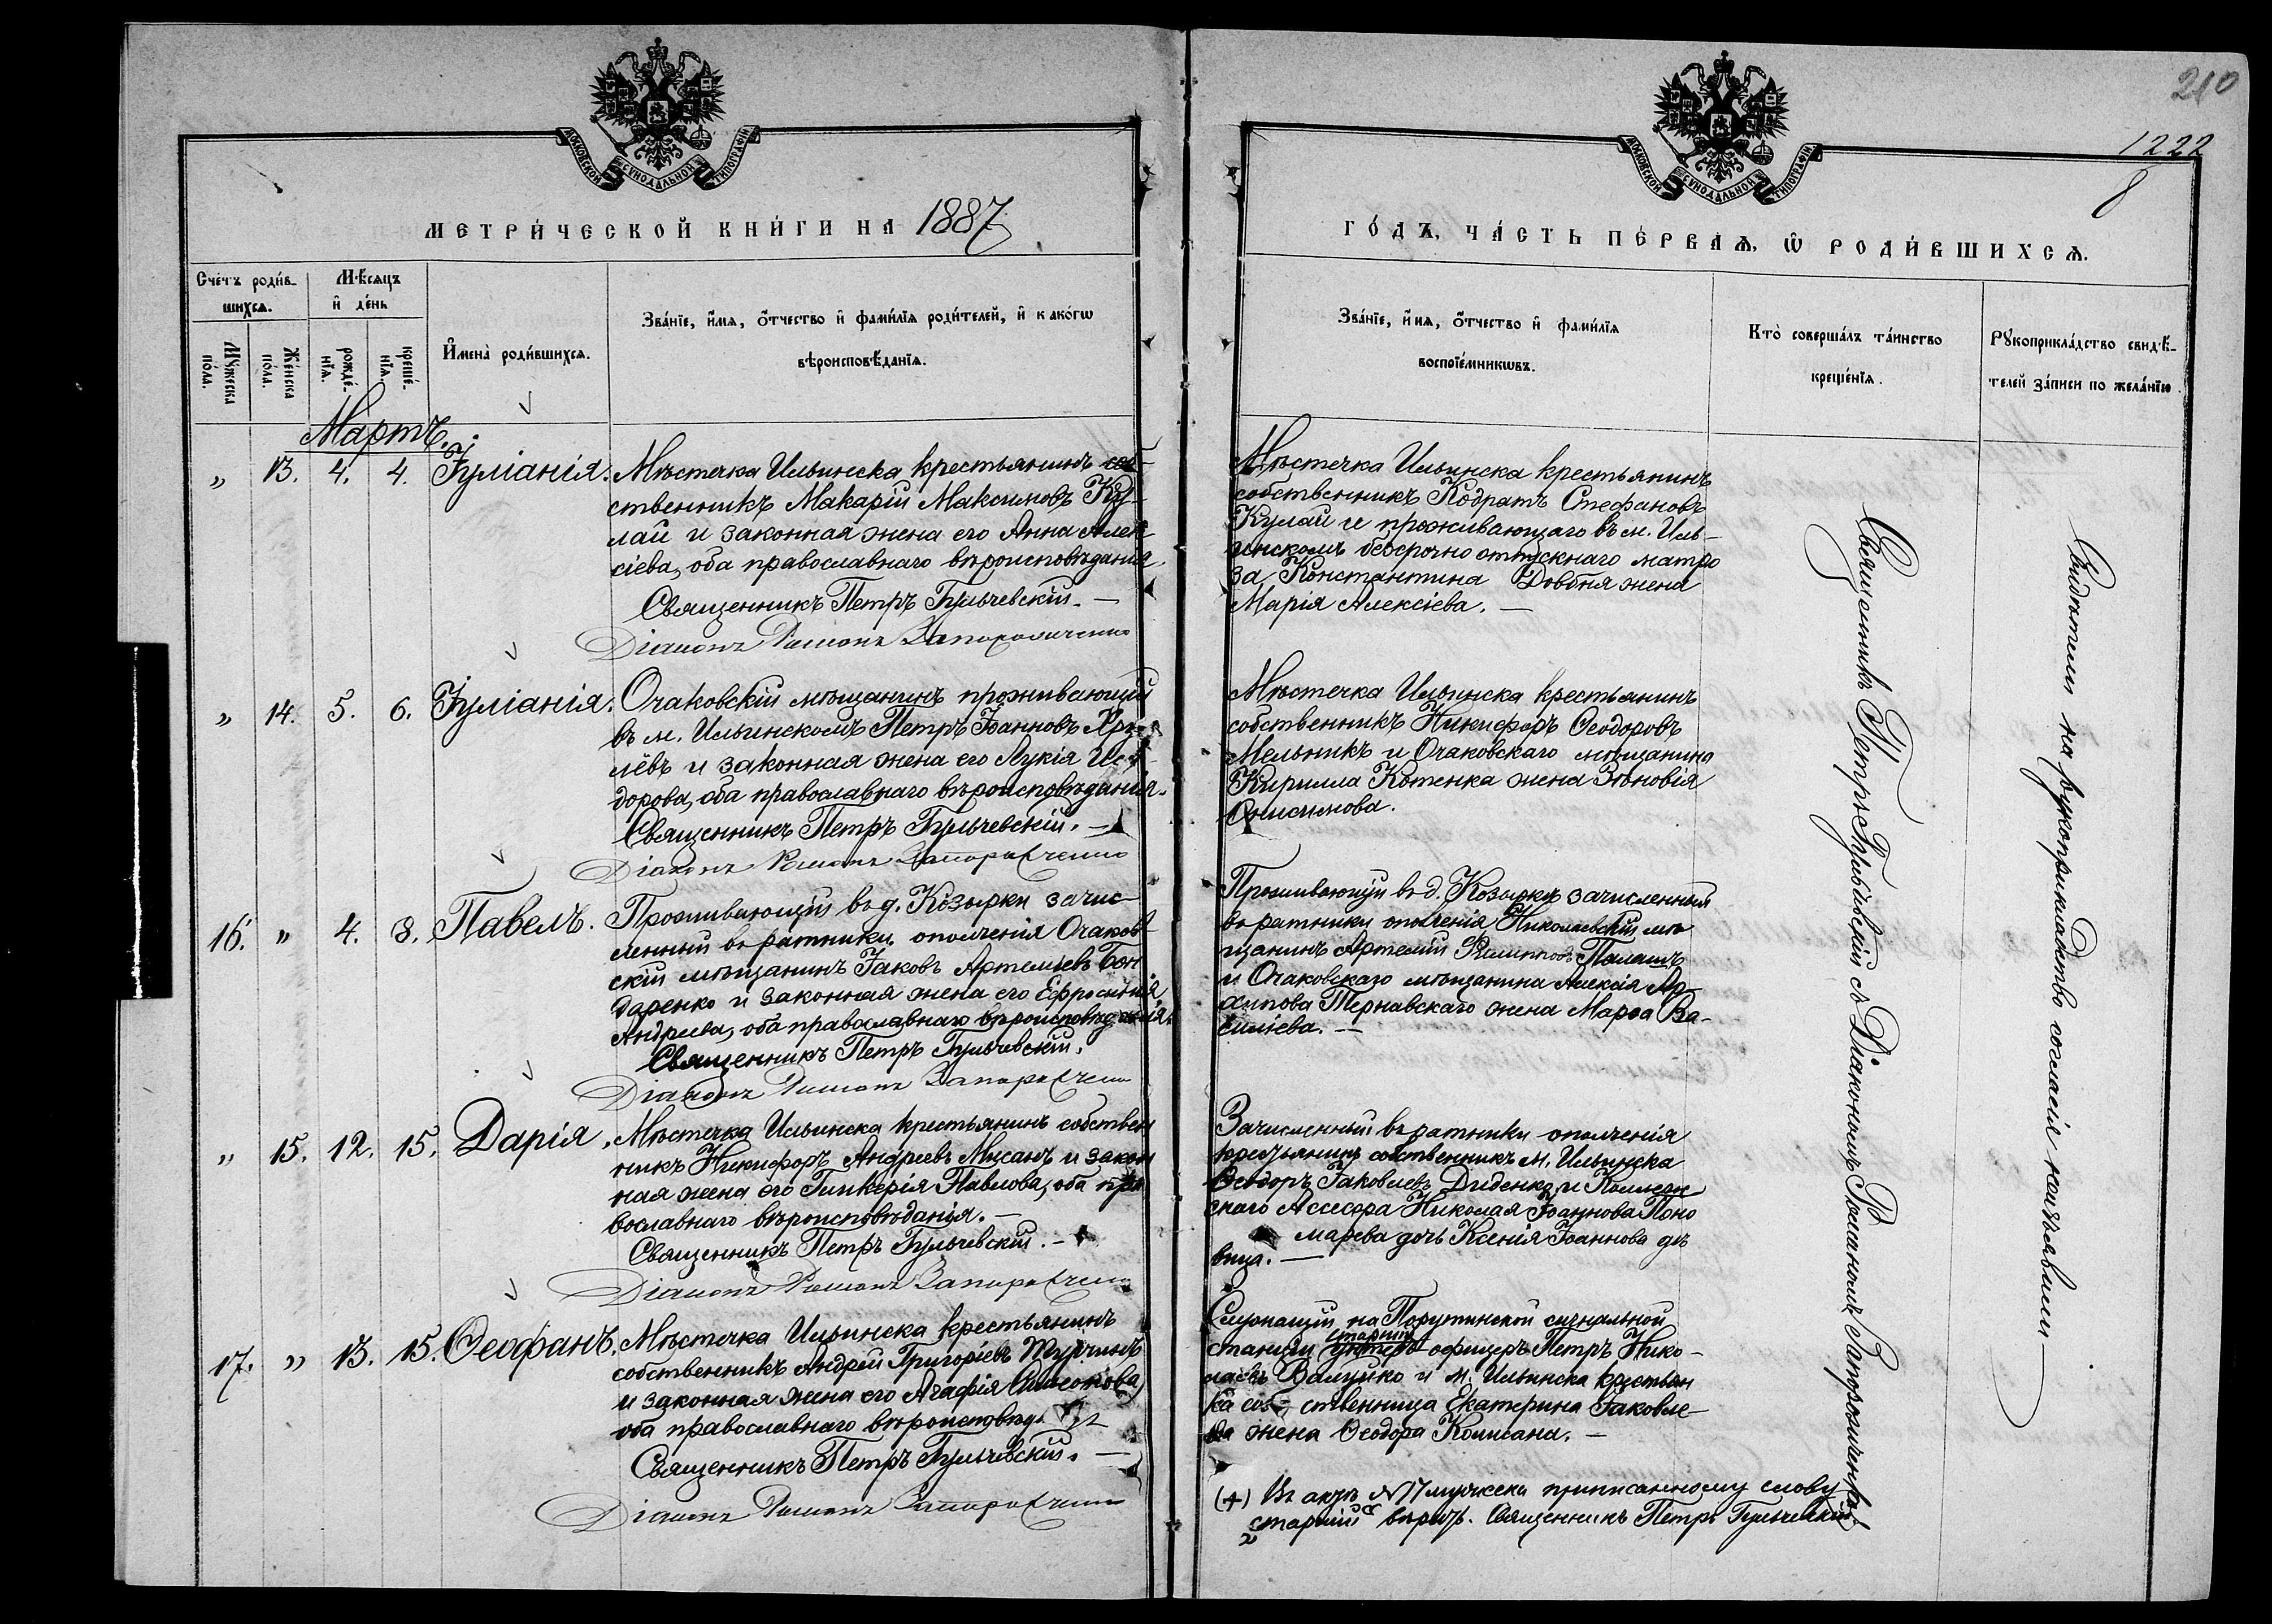 210
1222
8
МОСКОВСКОЙ СѴНОДАЛЬНОЙ ТИПОГРАФІИ
МОСКОВСКОЙ СѴНОДАЛЬНОЙ ТИПОГРАФІИ
МЕТРИ́ЧЕСКОЙ КНИ́ГИ НА 1887
ГО́ДЪ, ЧА́СТЬ ПЕ́РВАѦ, Ѿ РОДИ́ВШИХСѦ.
Сче́тъ роди́в-
шихсѧ.
Мѣ́сѧцъ
и҆ де́нь
Мꙋ́жеска
по́ла.
Же́нска
по́ла.
рожде́-
нїѧ.
креще́-
нїѧ.
И҆мена̀ роди́вшихсѧ.
Зва́нїе, и҆́мѧ, ѻ҆́тчество и҆ фами́лїѧ роди́телей, и҆ како́гѡ
вѣроисповѣ́данїѧ.
Зва́нїе, и҆́мѧ, ѻ҆́тчество и҆ фами́лїѧ
воспрїе́мникѡвъ.
Кто̀ соверша́лъ та́инство
креще́нїѧ.
Рꙋкоприкла́дство свидѣ́-
телей за́писи по жела́нїю.
Мартъ.
„ 13. 4. 4. Іуліанія.
Мѣстечка Ильинска крестьянинъ соб-
ственникъ Макарій Максимовъ Ку-
лай и законная жена его Анна Алек-
сіева, оба православнаго вѣроисповѣданія.
Священникъ Петръ Бульчевскій. —
Діаконъ Романъ Запорожченко
Мѣстечка Ильинска крестьянинъ
собственникъ Кодратъ Стефановъ
Кулай и проживающаго въ м. Иль-
инскомъ безсрочно отпускнаго матро
за Константина Довбня жена
Марія Алексіева. —
„ 14. 5. 6. Іуліанія.
Очаковскій мѣщанинъ проживающій
въ м. Ильинскомъ Петръ Іоанновъ
лёвъ и законная жена его Лукія Иси-
дорова, оба православнаго вѣроисповѣданія.
Священникъ Петръ Бульчевскій. —
Діаконъ Романъ Запорожченко
Мѣстечка Ильинска крестьянинъ
собственникъ Никифоръ Ѳеодоровъ
Мельникъ и Очаковскаго мѣщанина
Кирилла Котенка жена Зѣновія
Онисимова.
16. „ 4. 8. Павелъ.
Проживающій въ д. Козырки зачис-
ленный въ ратники ополченія Очаков-
скій мѣщанинъ Іаковъ Артемьевъ Бон
даренко и законная жена его Ефросинія
Андреева, оба православнаго вѣроисповѣданія.
Священникъ Петръ Бульчевскій.
Діаконъ Романъ Запорожченко
Проживающій въ д. Козырки зачисленный
въ ратники ополченія Николаевскій мѣ
щанинъ Артемій Паламъ
и Очаковскаго мѣщанина Алексія Ар-
хипова Тернавскаго жена Марѳа Ва-
силіева. —
„ 15. 12. 15. Дарія.
Мѣстечка Ильинска крестьянинъ собствен
никъ Никифоръ Андреевъ Мисанъ и закон
ная жена его Гликерія Павлова, оба пра
вославнаго вѣроисповѣданія. —
Священникъ Петръ Бульчевскій. —
Діаконъ Романъ Запорожченко
Зачисленный въ ратники ополченія
крестьянинъ собственникъ м. Ильинска
Ѳеодоръ Іаковлевъ Диденко и Коллеж-
скаго Ассесора Николая Іоаннова Поно
марева дочь Ксенія Іоаннова дѣ
вица. —
17. „ 13. 15. Ѳеофанъ.
Мѣстечка Ильинска крестьянинъ
собственникъ Андрей Григоріевъ Турчинъ
и законная жена его Агафія Симеонова,
оба православнаго вѣроисповѣд.
Священникъ Петръ Бульчевскій. —
Діаконъ Романъ Запорожченко
Служащій на Порутинской сигнальной
старшій
станціи унтеръ офицеръ Петръ Нико-
лаевъ Валуйко и м. Ильинска крестьян
ка соб- ственница Екатерина Іаковле-
ва жена Ѳеодора Комисана. —
(+) Въ актѣ №17 мужеска приписанному слову
„старшій“ вѣрить. Священникъ Петръ Бульчевскій
Священникъ Петръ Бульчевскій съ Діакономъ Романомъ Запорожченкомъ
Свидѣтели на рукоприкладство согласія не изъявили —